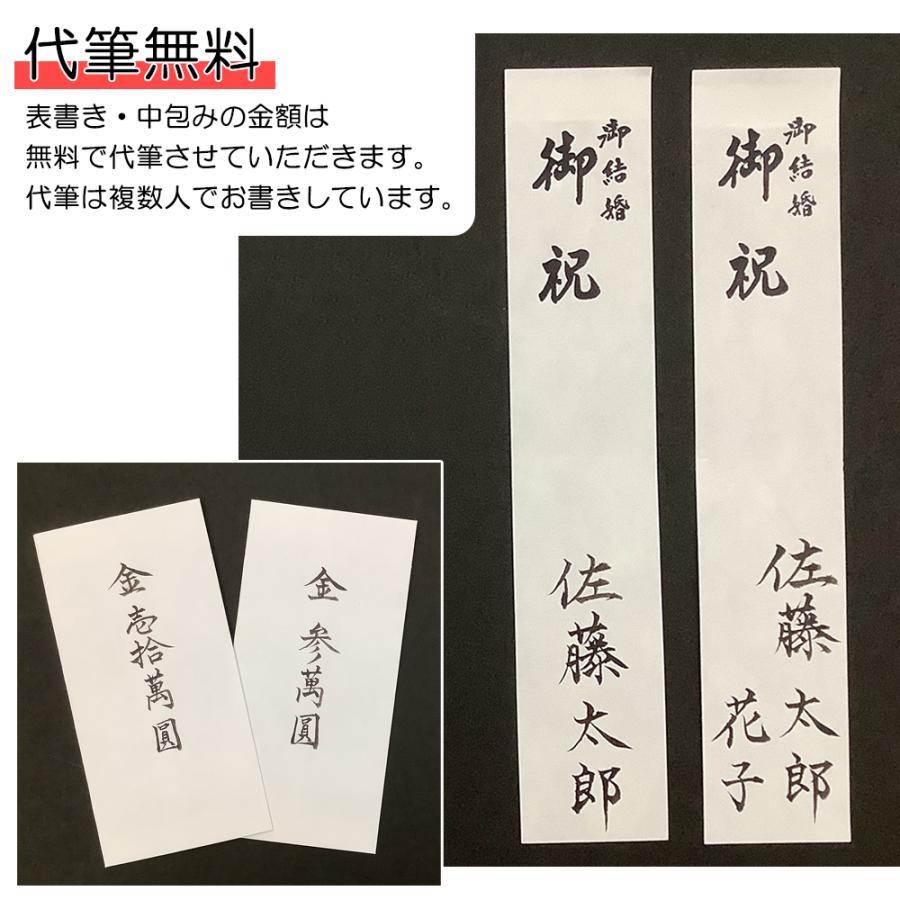 代筆無料
表書き・中包みの金額は
無料で代筆させていただきます。
代筆は複数人でお書きしています。
御結婚
御祝
佐藤太郎
御結婚
御祝
佐藤太郎
花子
金壱拾萬圓
金参萬圓